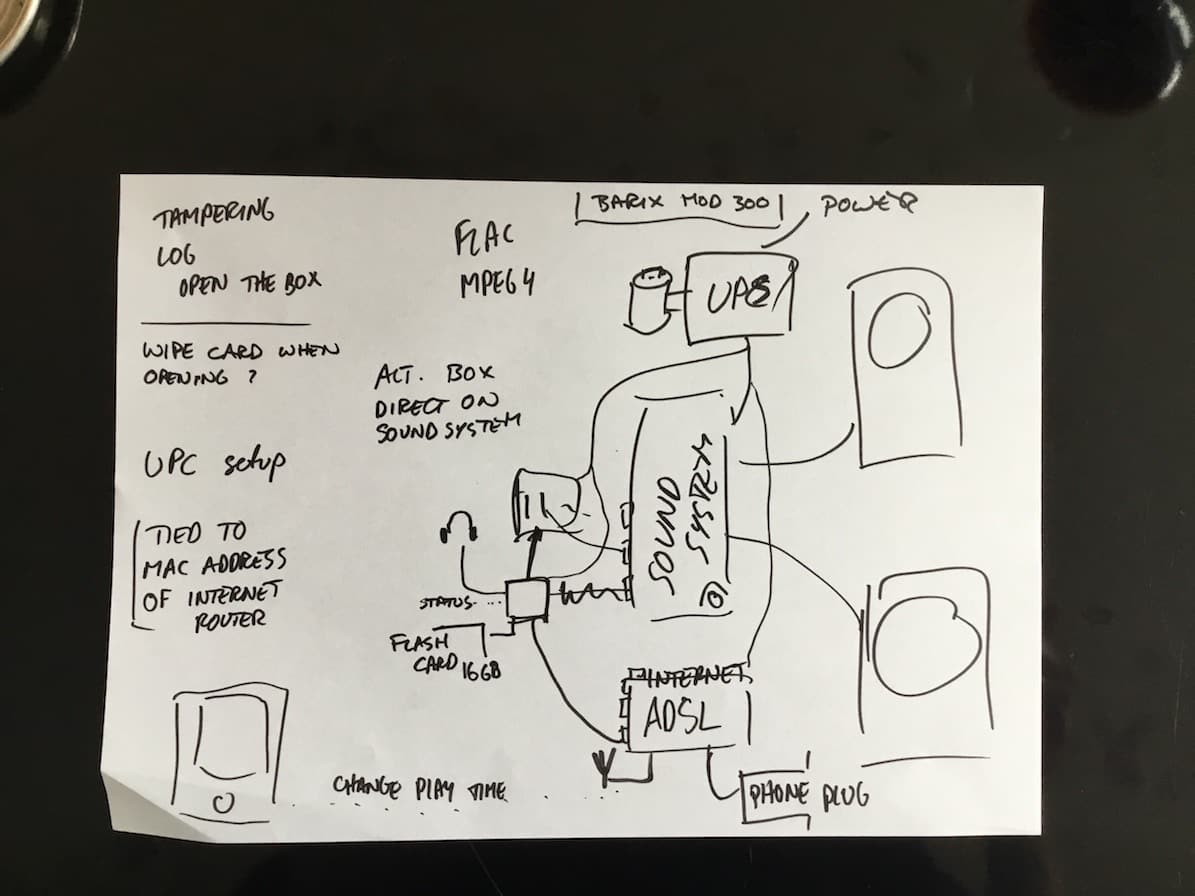 TAMPERING
LOG
OPEN THE BOX
WIPE CARD WHEN
OPENING ?
UPC setup
TIED TO
MAC ADDRESS
OF INTERNET
ROUTER
FLAC
MPEG4
ALT. BOX
DIRECT ON
SOUND SYSTEM
BARIX MOD 300
POWER
UPS
SOUND
SYSTEM
STATUS
FLASH
CARD 16GB
INTERNET
ADSL
PHONE PLUG
CHANGE PLAY TIME